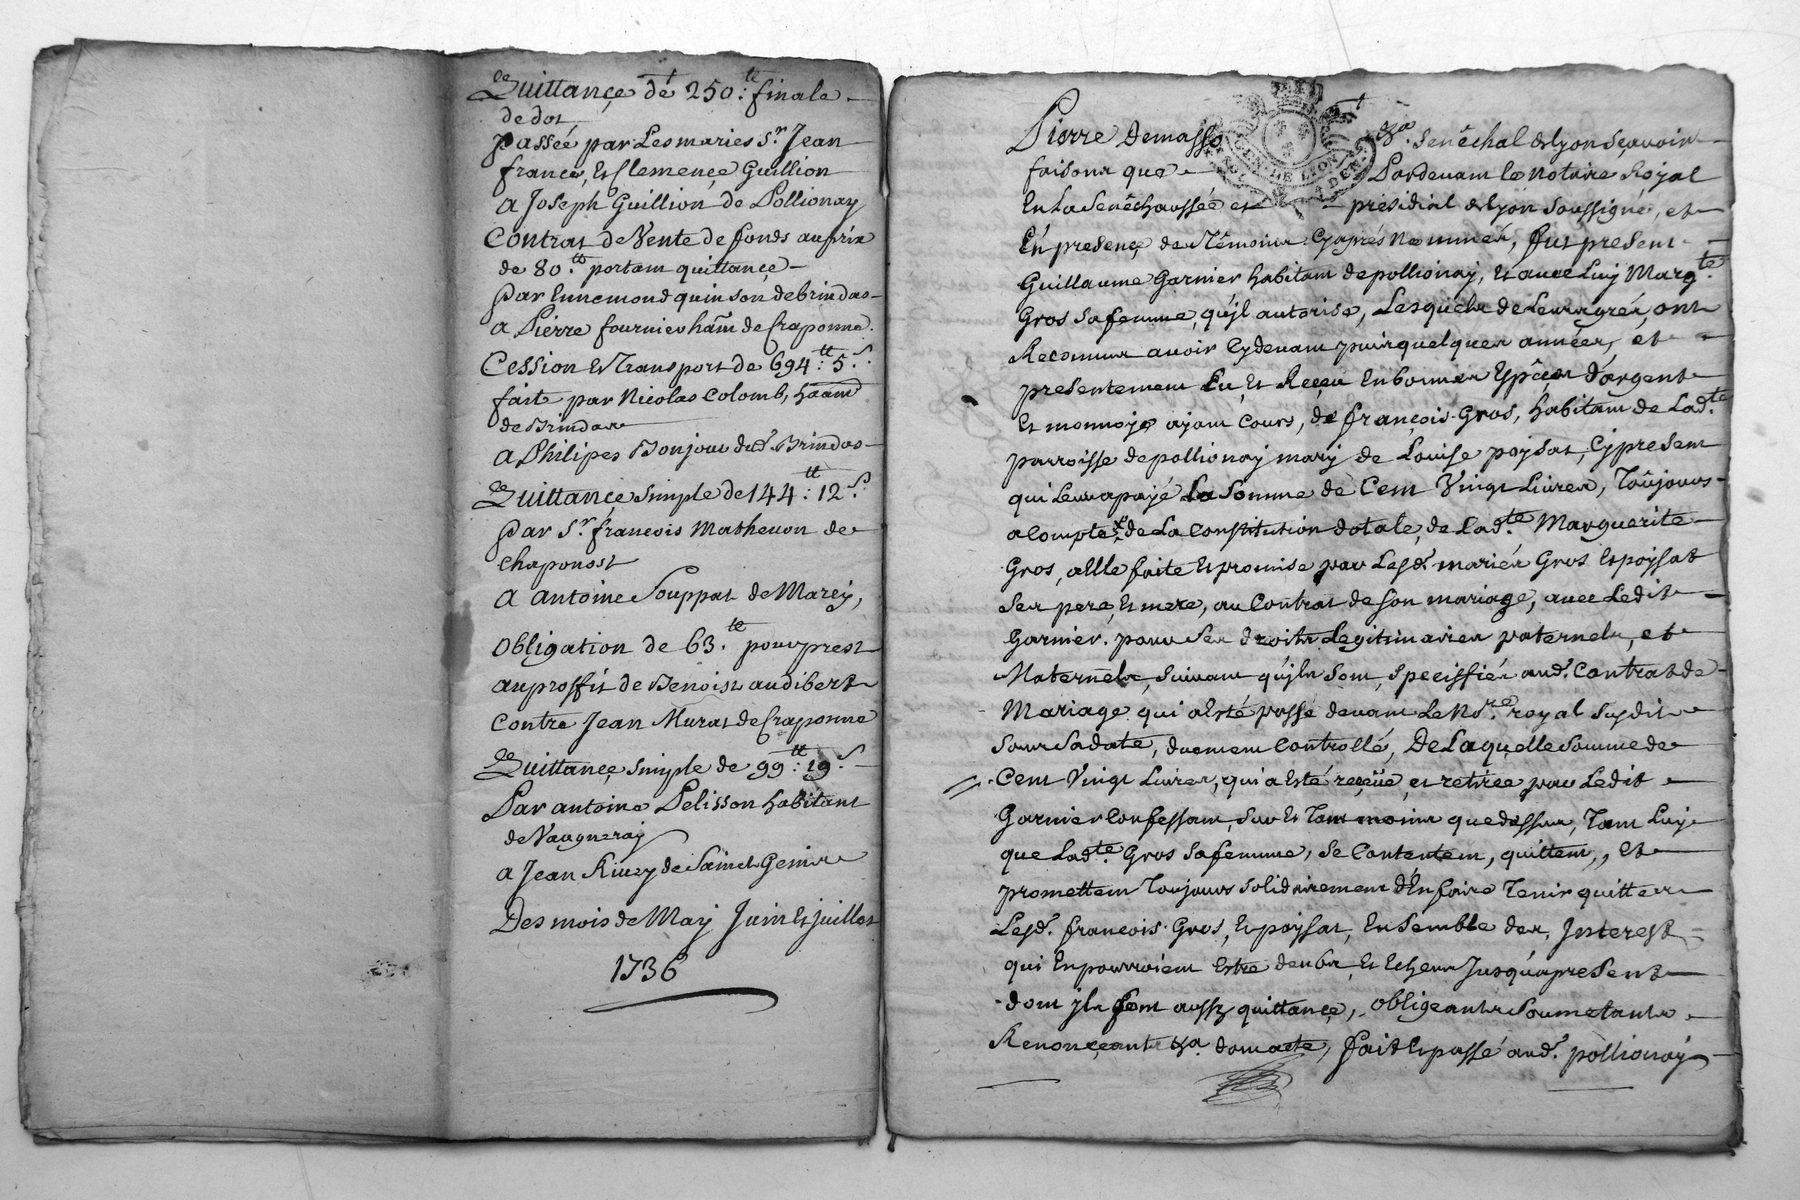 Quittance de 250:ᵗᵗ finale
de dot
passée par Les maries Sʳ. Jean
france, Et Clemence Guillion
A Joseph Guillion de Pollionay
Contrat de Vente de fonds au prix
de 80.ᵗᵗ portant quittance
Par Ennemond quinson de brindas
A Pierre fournier hañt de Craponne.
Cession Et Transport de 694:ᵗᵗ 5:ˢ
faite par Nicolas Colomb, haant
de Brindas
A Philipes Bonjour dud. Brindas
Quittance simple de 144:ᵗᵗ 12.ˢ
Par Sʳ. francois Mathevon de
Chaponost
A antoine Souppat de Marcy,
Obligation de 63.ᵗᵗ pour prest
au proffit de Benoist audibert
Contre Jean Murat de Craponne
Quittance simple de 99:ᵗᵗ 19.ˢ
Par antoine Pelisson habitant
de Vaugneray
A Jean Rivery de Sainct Genis
Des mois de May Juin Et juillet
1736
Pierre Demasso &ᵃ. Senêchal de lyon sçavoir
faisons que Pardevant le Notaire Royal
En La Senêchaussée et présidial de lyon soussigné, et
En presence des Têmoins Cyaprés Nommés, fut present
Guillaume Garnier habitant de pollionay, Et avec Luy Margᵗᵉ.
Gros sa femme, qu'jl autorise, Lesquels de Leurs grés, ont
Reconnus avoir Cydevant puis quelques années, et
presentement Eu, Et Reçeu En bonnes Espêces d'argent
Et monnoye ayant Cours, de françois Gros, habitant de Ladᵗᵉ.
parroisse de pollionay mary de Louise poysat, Cypresent
qui Leur a payé La Somme de Cent Vingt Livres, Toûjours
a Compte de La Constitution dotale, de Ladᵗᵉ. Marguerite
Gros, a Elle faite Et promise par Lesd. mariés Gros Et poysat
Ses pere, Et mere, au Contrat de son mariage, avec Ledit
Garnier. pour Ses droits Legitimaires paternels, et
Maternels, Suivant qu'jls sont, specifiés aud. Contrat de
Mariage qui a Esté passé devant Le Noʳᵉ. royal susdit
sous Sa date, duement Controllé, De Laquelle Somme de
Cent Vingt Livres, qui a Esté reçüe, et retirée par Ledit
Garnier Confessant, Sur Et Tant moins que dessus, Tant Luy
que Ladᵗᵉ. Gros sa femme, Se Contentent, quittent, Et
promettent Toujours solidairement d'En faire Tenir quittes
Lesd. francois Gros, Et poysat, Ensemble des Jnterest
qui En pourroient Estre deubs, Et Echeus Jusqu'a present
dont jls font aussy quittance, Obligeants Soumetants
Renonçeants &ᵃ. dont acte, fait Et passé aud. pollionay